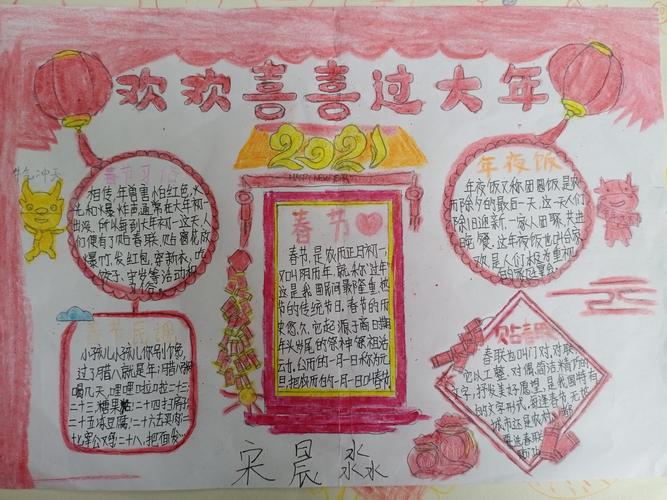 欢欢喜喜过大年
2021
HAPPY NEW YEAR
牛气冲天
春节习俗
相传,年兽害怕红色,火
光和爆炸声,通常在大年初一
出没,所以每到大年初一这天,人
们便有了贴春联、贴窗花、放
爆竹、发红包、穿新衣、吃
饺子、守岁等活动和
习俗。
春节
春节,是农历正月初一,
又叫阴历年,就称"过年"
这是我国民间最隆重、最热
节的传统节日。春节的历史
悠久,它起源于商日期
年头岁尾的祭神祭祖活
公历的一月一日称为元
旦,把农历的一月一日叫春节
年夜饭
年夜饭又称团圆饭是农
历除夕的最后一天,这一天人们
除旧迎新,一家人团聚,共进
晚餐。这年夜饭也叫合家
欢,是人们极为重视
的家庭宴会
春节民谣
小孩儿小孩儿你别馋,
过了腊八就是年;腊八粥
喝几天,哩哩啦啦二十三;
二十三,糖果粘;二十四扫房子
二十五冻豆腐;二十六去买肉;二
十七宰公鸡;二十八,把面发
贴春联
春联也叫门对,对联
它以工整、对偶、简洁、精巧的
文字,抒发美好愿望,是我国特有
的文字形式,每逢春节,无论
城市还是农村
要选春联
宋晨淼